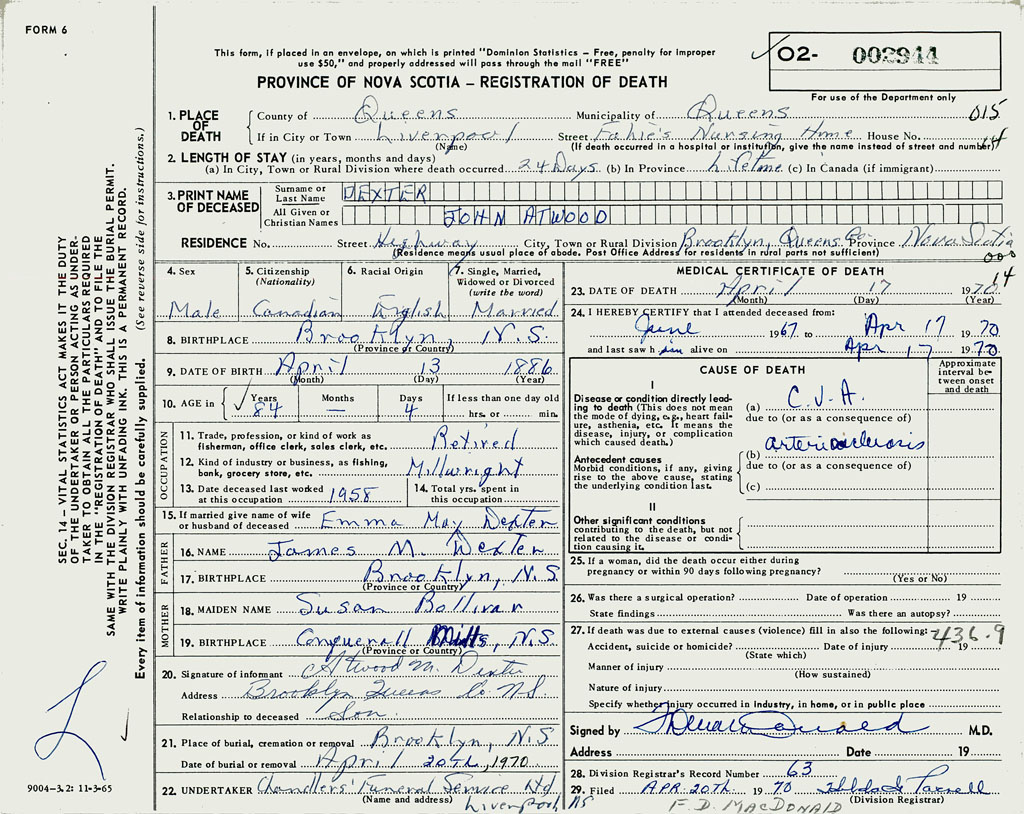 FORM 6
This form, if placed in an envelope, on which is printed "Dominion Statistics – Free, penalty for improper
use $50," and properly addressed will pass through the mail "FREE"
PROVINCE OF NOVA SCOTIA – REGISTRATION OF DEATH
02- 002944
For use of the Department only
1. PLACE OF DEATH
County of Queens Municipality of Queens 015
If in City or Town Liverpool Street Fahie's Nursing Home House No. 14
(Name) (If death occurred in a hospital or institution, give the name instead of street and number)
2. LENGTH OF STAY (in years, months and days)
(a) In City, Town or Rural Division where death occurred 24 Days (b) In Province Lifetime (c) In Canada (if immigrant)
3. PRINT NAME OF DECEASED
Surname or Last Name DEXTER
All Given or Christian Names JOHN ATWOOD
RESIDENCE No. Street Highway City, Town or Rural Division Brooklyn, Queens Co Province Nova Scotia
(Residence means usual place of abode. Post Office Address for residents in rural parts not sufficient)
000
14
4. Sex
Male
5. Citizenship
(Nationality)
Canadian
6. Racial Origin
English
7. Single, Married,
Widowed or Divorced
(write the word)
Married
8. BIRTHPLACE Brooklyn, N.S.
(Province or Country)
9. DATE OF BIRTH April 13 1886
(Month) (Day) (Year)
10. AGE in Years 84 Months — Days 4 If less than one day old
hrs. or min.
OCCUPATION
11. Trade, profession, or kind of work as
fisherman, office clerk, sales clerk, etc. Retired
12. Kind of industry or business, as fishing,
bank, grocery store, etc. Millwright
13. Date deceased last worked
at this occupation 1958
14. Total yrs. spent in
this occupation
15. If married give name of wife
or husband of deceased Emma May Dexter
FATHER
16. NAME James M. Dexter
17. BIRTHPLACE Brooklyn, N.S.
(Province or Country)
MOTHER
18. MAIDEN NAME Susan Bollivar
19. BIRTHPLACE Conquerall Mills, N.S.
(Province or Country)
20. Signature of informant Atwood M. Dexter
Address Brooklyn Queens Co NS.
Relationship to deceased Son
21. Place of burial, cremation or removal Brooklyn, N.S
Date of burial or removal April 20th, 1970
22. UNDERTAKER Chandlers' Funeral Service Ltd
(Name and address) Liverpool, NS
MEDICAL CERTIFICATE OF DEATH
23. DATE OF DEATH April 17 1970
(Month) (Day) (Year)
24. I HEREBY CERTIFY that I attended deceased from:
June 1967 to Apr 17 1970
and last saw him alive on Apr 17 1970
CAUSE OF DEATH
Approximate
interval be-
tween onset
and death
I
Disease or condition directly lead-
ing to death (This does not mean
the mode of dying, e.g., heart fail-
ure, asthenia, etc. It means the
disease, injury, or complication
which caused death.)
(a) C.V.A.
due to (or as a consequence of)
Antecedent causes
Morbid conditions, if any, giving
rise to the above cause, stating
the underlying condition last.
(b) arteriosclerosis
due to (or as a consequence of)
(c)
II
Other significant conditions
contributing to the death, but not
related to the disease or condi-
tion causing it.
25. If a woman, did the death occur either during
pregnancy or within 90 days following pregnancy?
(Yes or No)
26. Was there a surgical operation? Date of operation 19
State findings Was there an autopsy?
27. If death was due to external causes (violence) fill in also the following: 436.9
Accident, suicide or homicide? Date of injury 19
(State which)
Manner of injury
(How sustained)
Nature of injury
Specify whether injury occurred in industry, in home, or in public place
Signed by M.D.
Address Date 19
28. Division Registrar's Record Number 63
29. Filed APR. 20TH. 1970
(Division Registrar)
F. D. MACDONALD
SEC. 14 – VITAL STATISTICS ACT MAKES IT THE DUTY
OF THE UNDERTAKER OR PERSON ACTING AS UNDER-
TAKER TO OBTAIN ALL THE PARTICULARS REQUIRED
IN THE "REGISTRATION OF DEATH" AND TO FILE THE
SAME WITH THE DIVISION REGISTRAR WHO SHALL ISSUE THE BURIAL PERMIT.
WRITE PLAINLY WITH UNFADING INK. THIS IS A PERMANENT RECORD.
Every item of information should be carefully supplied. (See reverse side for instructions.)
9004-3.2: 11-3-65